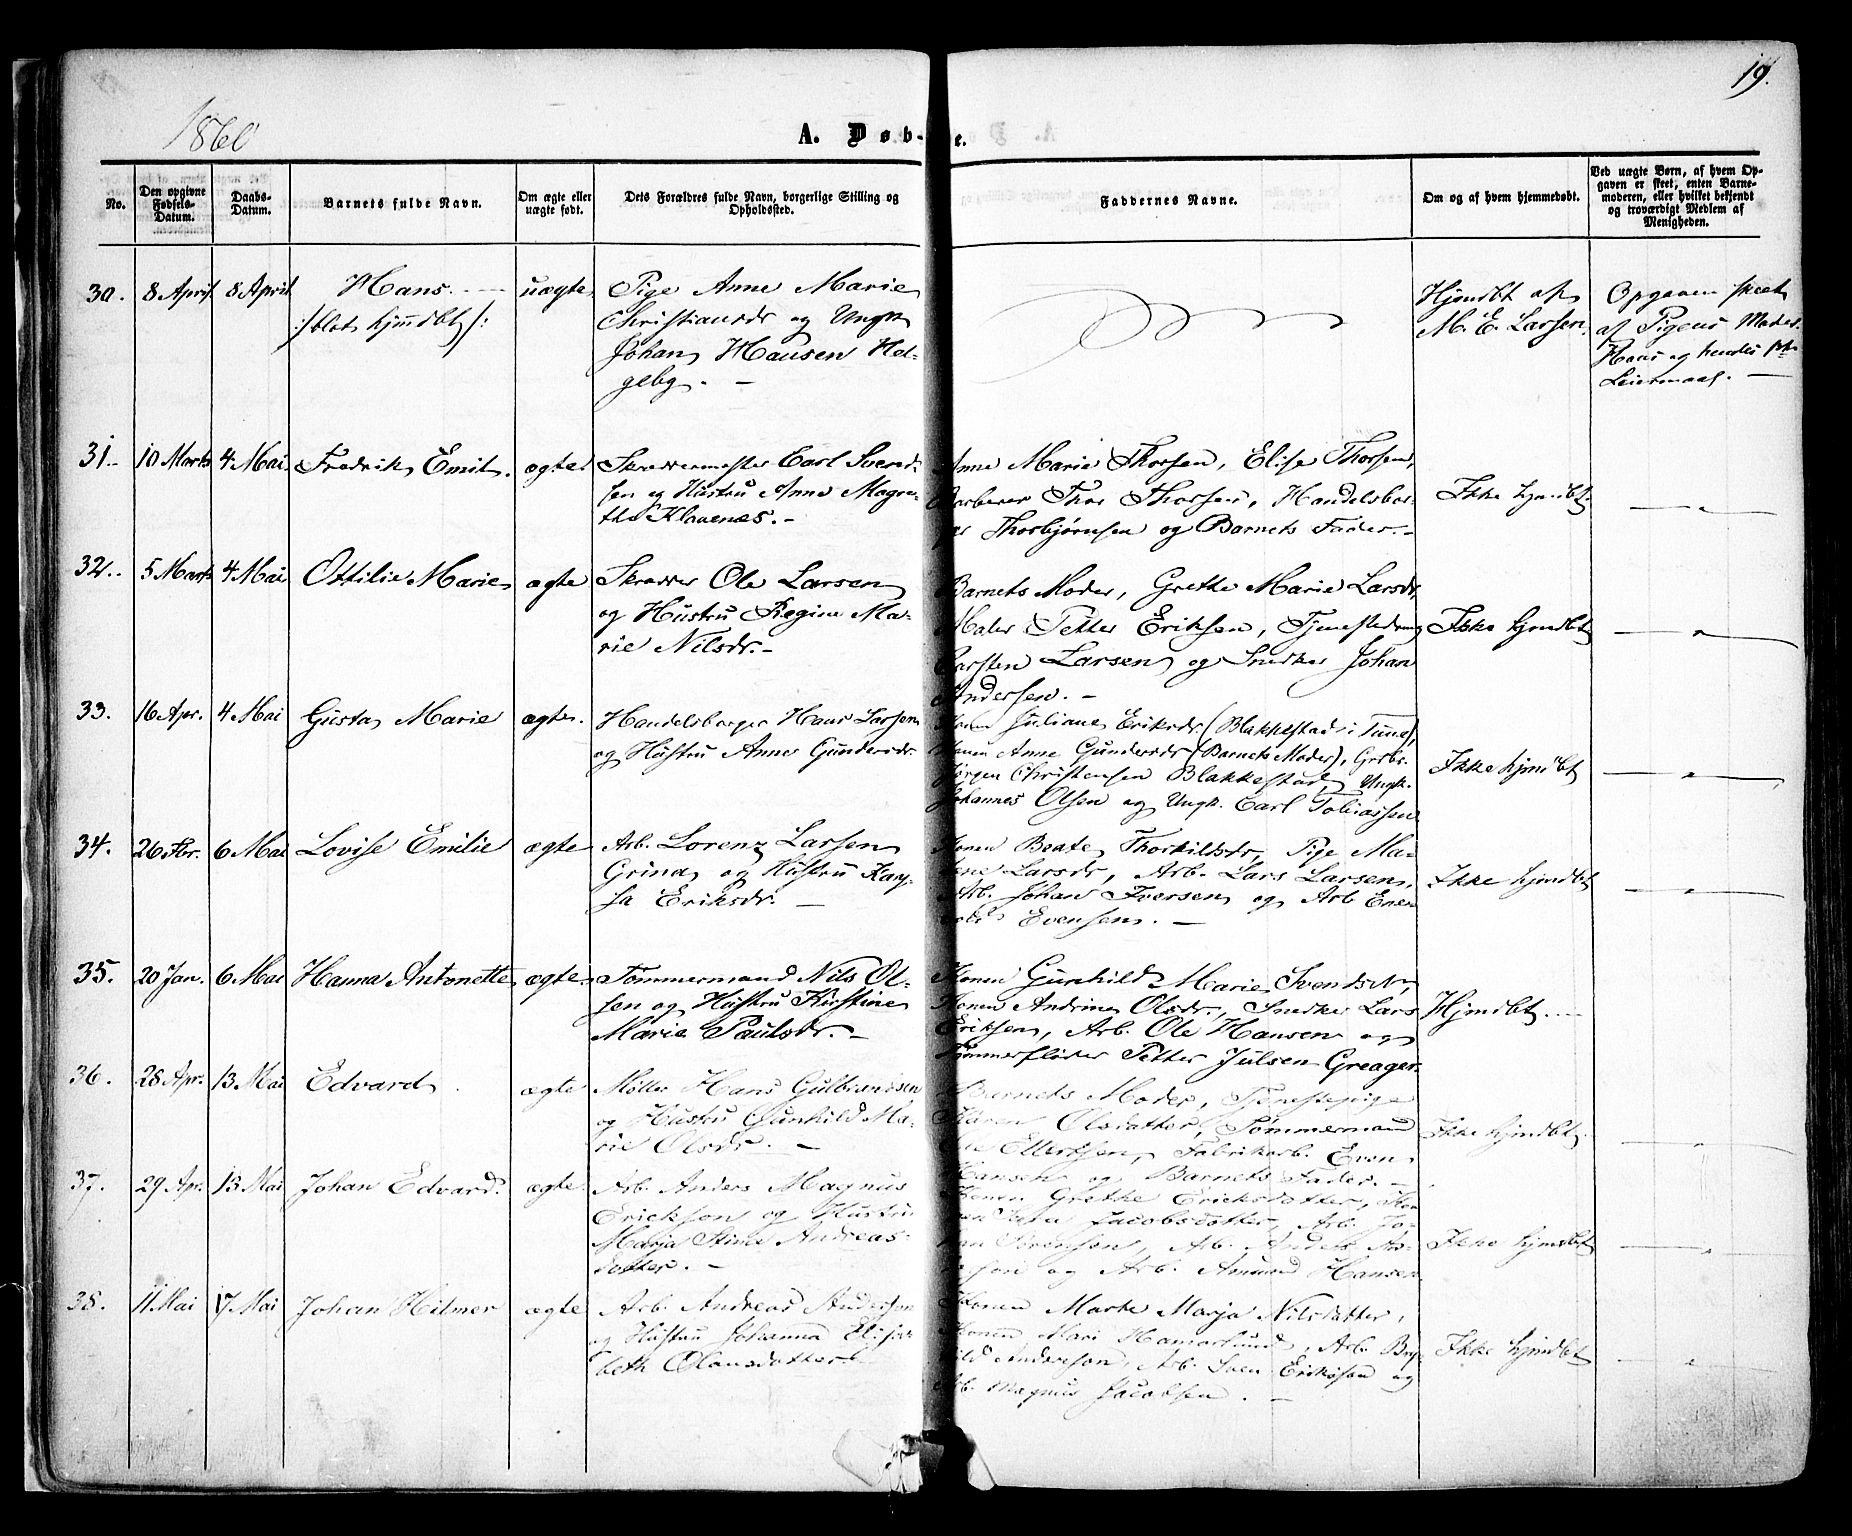 19.
1860
A. Døb-te.
No.
Den opgivne Fødsels-Datum.
Daabs-Datum.
Barnets fulde Navn.
Om ægte eller uægte født.
Dets Forældres fulde Navn, borgerlige Stilling og Opholdssted.
Faddernes Navne.
Om og af hvem hjemmedøbt.
Ved uægte Børn, af hvem Opgaven er skeet, enten Barnemoderen, eller hvilket bekjendt og troværdigt Medlem af Menigheden.
30. 8 April 8 April Hans. uægte
:/blot hjmdbt/:
Pige Anne Marie
Christiansdr og Ungk
Johan Hansen Hel-
gebg. –
Hjmdbt af
M. E. Larsen.
Opgaven skeet
af Pigens Moder.
Hans og hendes
Leiermaal. –
31. 10 Marts 4 Mai Fredrik Emil. ægte
Skræddermester Carl Svend-
sen og Hustru Anne Magre-
the Klavenæs. –
Anne Marie Thorsen, Elise Thorsen,
Barberer Thor Thorsen, Handelsbor-
ger Thorbjørnsen og Barnets Fader. –
Ikke hjmdbt
32. 5 Marts 4 Mai Ottilie Marie ægte
Skrædder Ole Larsen
og Hustru Regine Ma-
rie Nilsdr. –
Barnets Moder, Grethe Marie Larsdr,
Maler Petter Eriksen, Tjenestedreng
Carsten Larsen og Snedker Johan
Andersen. –
Ikke hjmdbt
33. 16 Apr. 4 Mai Gusta Marie ægte.
Handelsborger Hans Larsen
og Hustru Anne Gundersdr.
Konen Juliane Eriksdr. (Blakkestad i Tune),
Konen Anne Gundersdr (Barnets Moder), Grbr.
Jørgen Christensen Blakkestad, Ungk.
Johannes Olsen og Ungk. Carl Tobiassen
Ikke hjmdbt
34. 26 Fbr. 6 Mai Lovise Emilie ægte
Arb. Lorenz Larsen
Grina og Hustru Kay-
sa Eriksdr. –
Konen Beate Thorkildsdr, Pige Ma-
Larsdr, Arb. Lars Larsen,
Arb. Johan Iversen og Arb
Evensen. –
Ikke hjmdbt
35. 20 Jan. 6 Mai Hanna Antonette ægte
Tømmermand Nils Ol-
sen og Hustru Kirstine
Marie Paulsdr. –
Konen Gunhild Marie Svendsdr,
Konen Andrine Olsdr., Snedker Lars
Eriksen, Arb. Ole Hansen og
Tømmerfløder Petter Julsen Greager.
Hjmdbt
36. 28 Apr. 13 Mai Edvard ægte
Møller Hans Gulbrandsen
og Hustru Gunhild Ma-
rie Olsdr. –
Barnets Moder, Tjenestepige
Karen Olsdatter, Tømmermand
Ole Ellertsen, Fabrikarb. Even
Hansen og Barnets Fader. –
Ikke hjmdbt.
37. 29 Apr. 13 Mai Johan Edvard. ægte
Arb. Anders Magnus
Erickson og Hustru
Marja Stina Andreas-
dotter. –
Konen Grethe Ericksdotter, Ko-
nen Jacobsdotter, Arb. Jo-
han Sørenson, Arb. Anders
og Arb. Amund Hansen
Ikke hjmdbt
38. 11 Mai 17 Mai Johan Hilmer ægte
Arb. Andreas Anderson
og Hustru Johanna Elisa-
beth Olausdotter. –
Konen Marte Marja Nilsdatter,
Konen Mari Hamarlund, Arb.
Anderson, Arb. Sven Erikson og
Arb. Magnus Jacobsen. –
Ikke hjmdbt